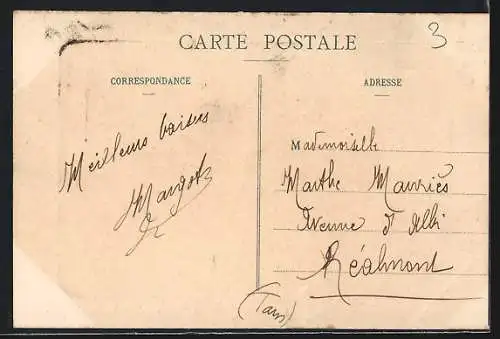 CARTE POSTALE
3
CORRESPONDANCE
Meilleurs baisers
Margot
ADRESSE
Mademoiselle
Marthe Mauriès
Avenue d'Albi
Réalmont
(Tarn)